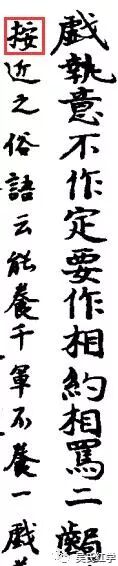 戲執意不作定要作相約相罵二齣
按近之俗語云能養千軍不養一戲
吴氏红学